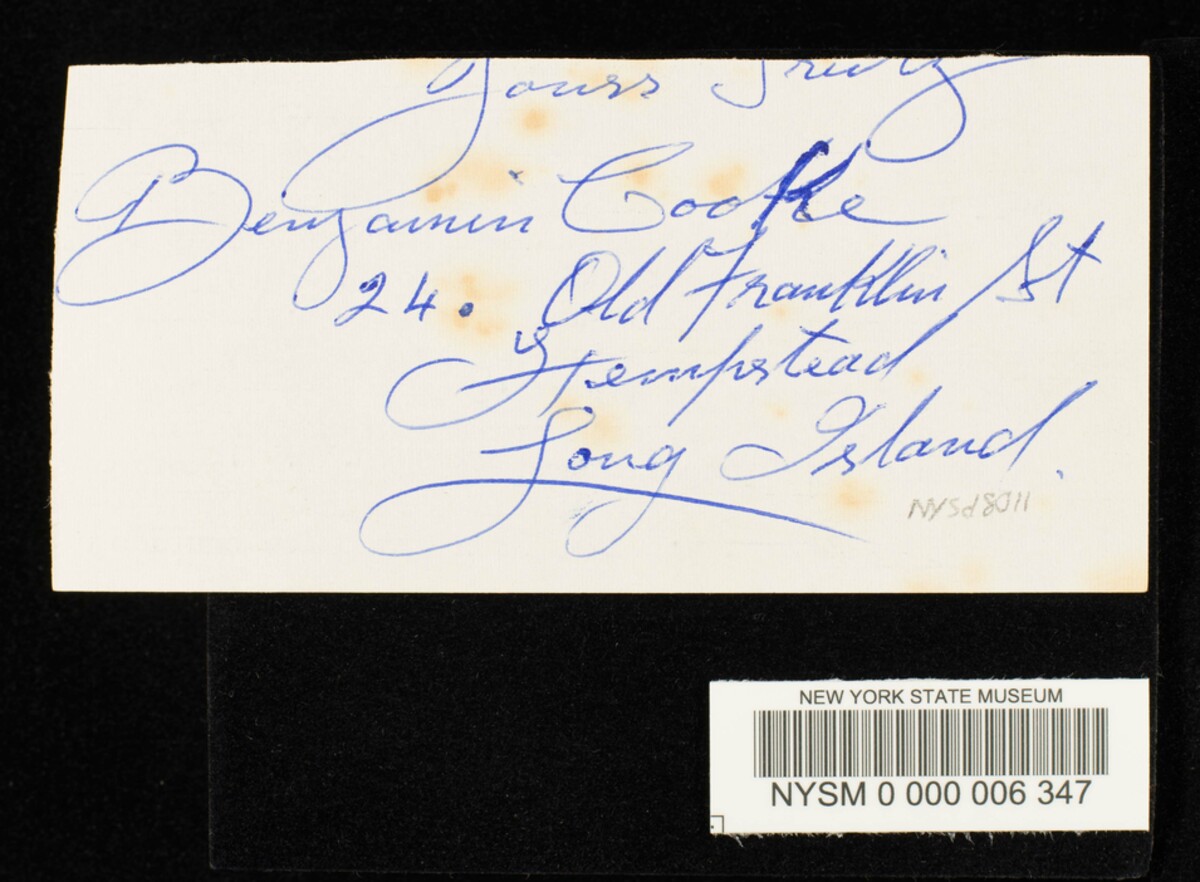 Yours Truly
Benjamin Cooke
24. Old Franklin St
Hempstead
Long Island.
NYSd8011
NEW YORK STATE MUSEUM
NYSM 0 000 006 347